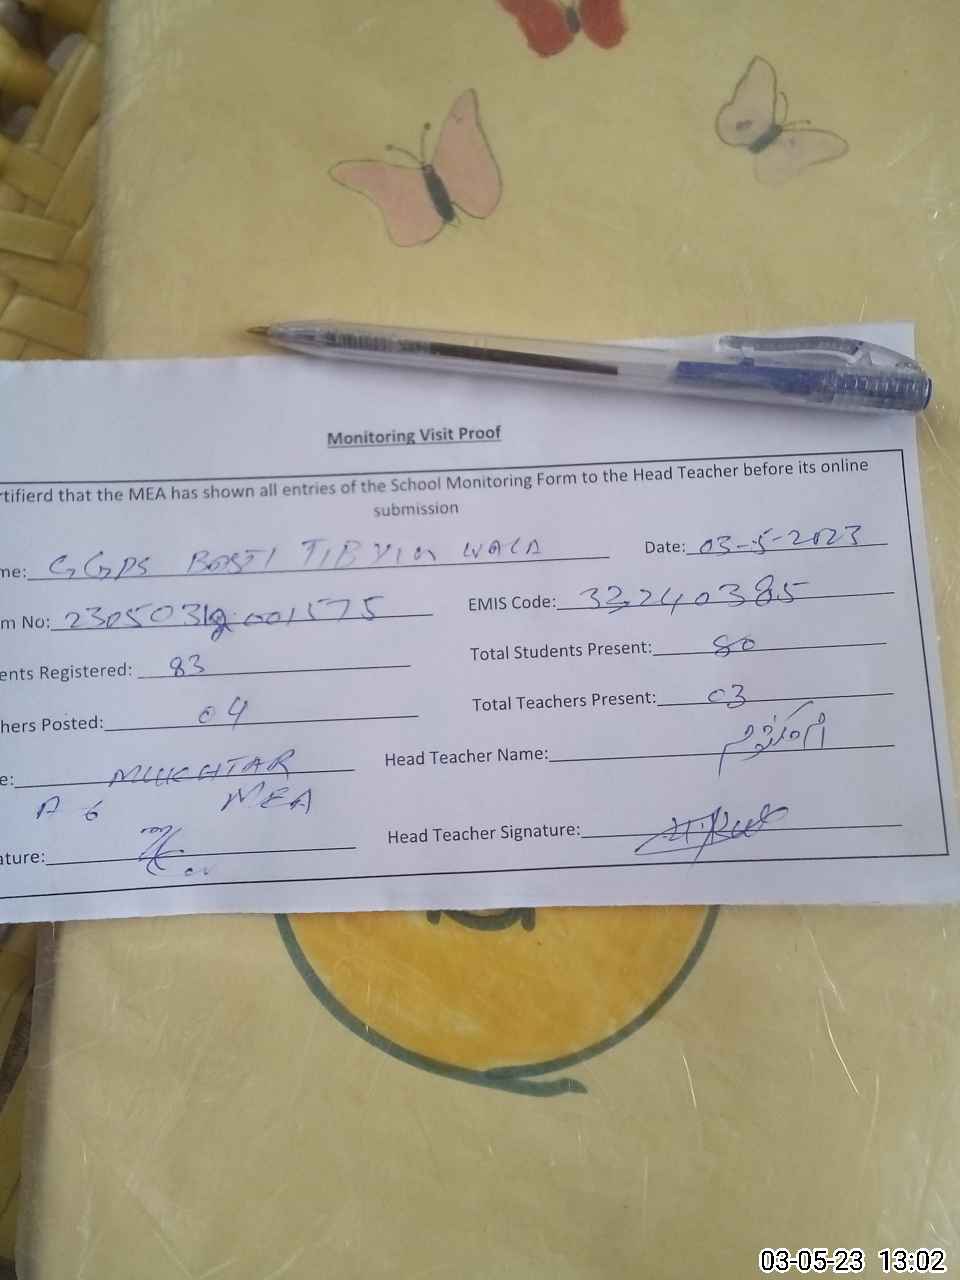 Monitoring Visit Proof
rtifierd that the MEA has shown all entries of the School Monitoring Form to the Head Teacher before its online
submission
me: GGPS BASTI TIBYIN WALA Date: 03-5-2023
m No: 001575 EMIS Code: 32240385
ents Registered: 83 Total Students Present: 80
hers Posted: 04 Total Teachers Present: 03
e: MUKHTAR Head Teacher Name: ام کلثوم
A 6 MEA
ature: Head Teacher Signature:
03-05-23 13:02